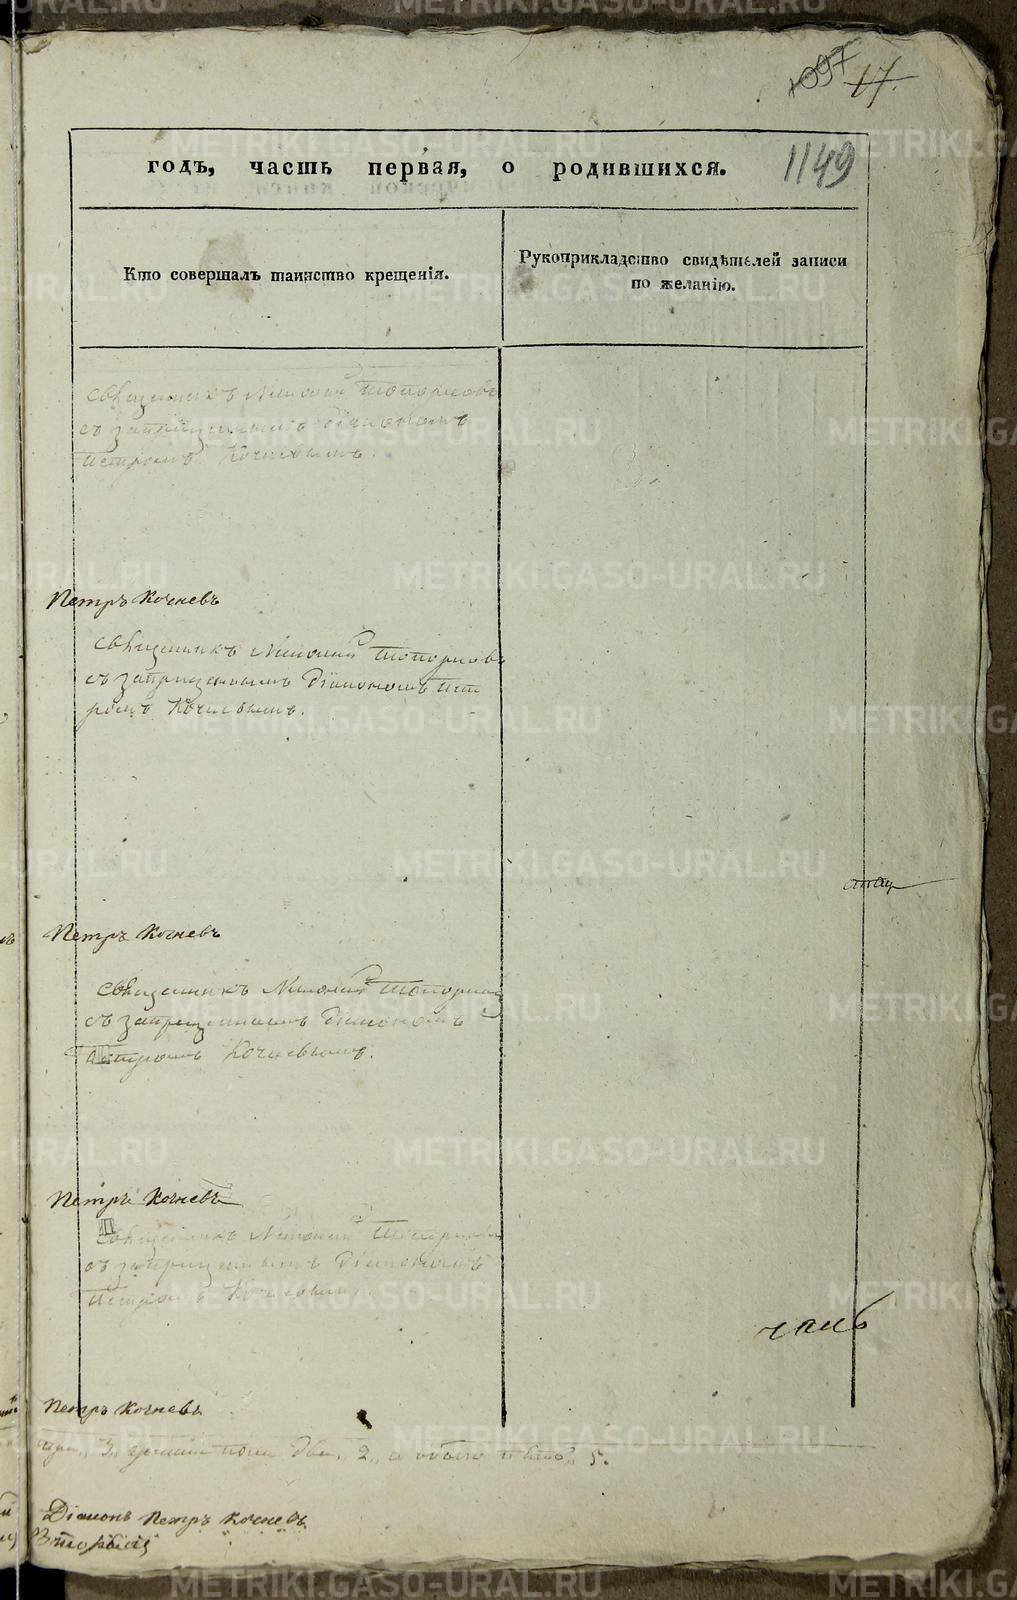 1097 17.
годъ, часть первая, о родившихся. 1149
Кто совершалъ таинство крещенія.
Рукоприкладство свидѣтелей записи
по желанію.
Священникъ Топорковъ
съ запрещеннымъ Діакономъ
Петромъ Кочневымъ.
Петръ Кочневъ
Священникъ Топорковъ
съ запрещеннымъ Діакономъ Пет
ромъ Кочневымъ.
Петръ Кочневъ
Священникъ
съ запрещеннымъ Діакономъ
Петромъ Кочневымъ.
Петръ Кочневъ
Священникъ
съ запрещеннымъ Діакономъ
Петромъ Кочневымъ.
часть
Петръ Кочневъ
3, женска пола два, 2, а обоего пять, 5.
Діаконъ Петръ Кочневъ
METRIKI.GASO-URAL.RU